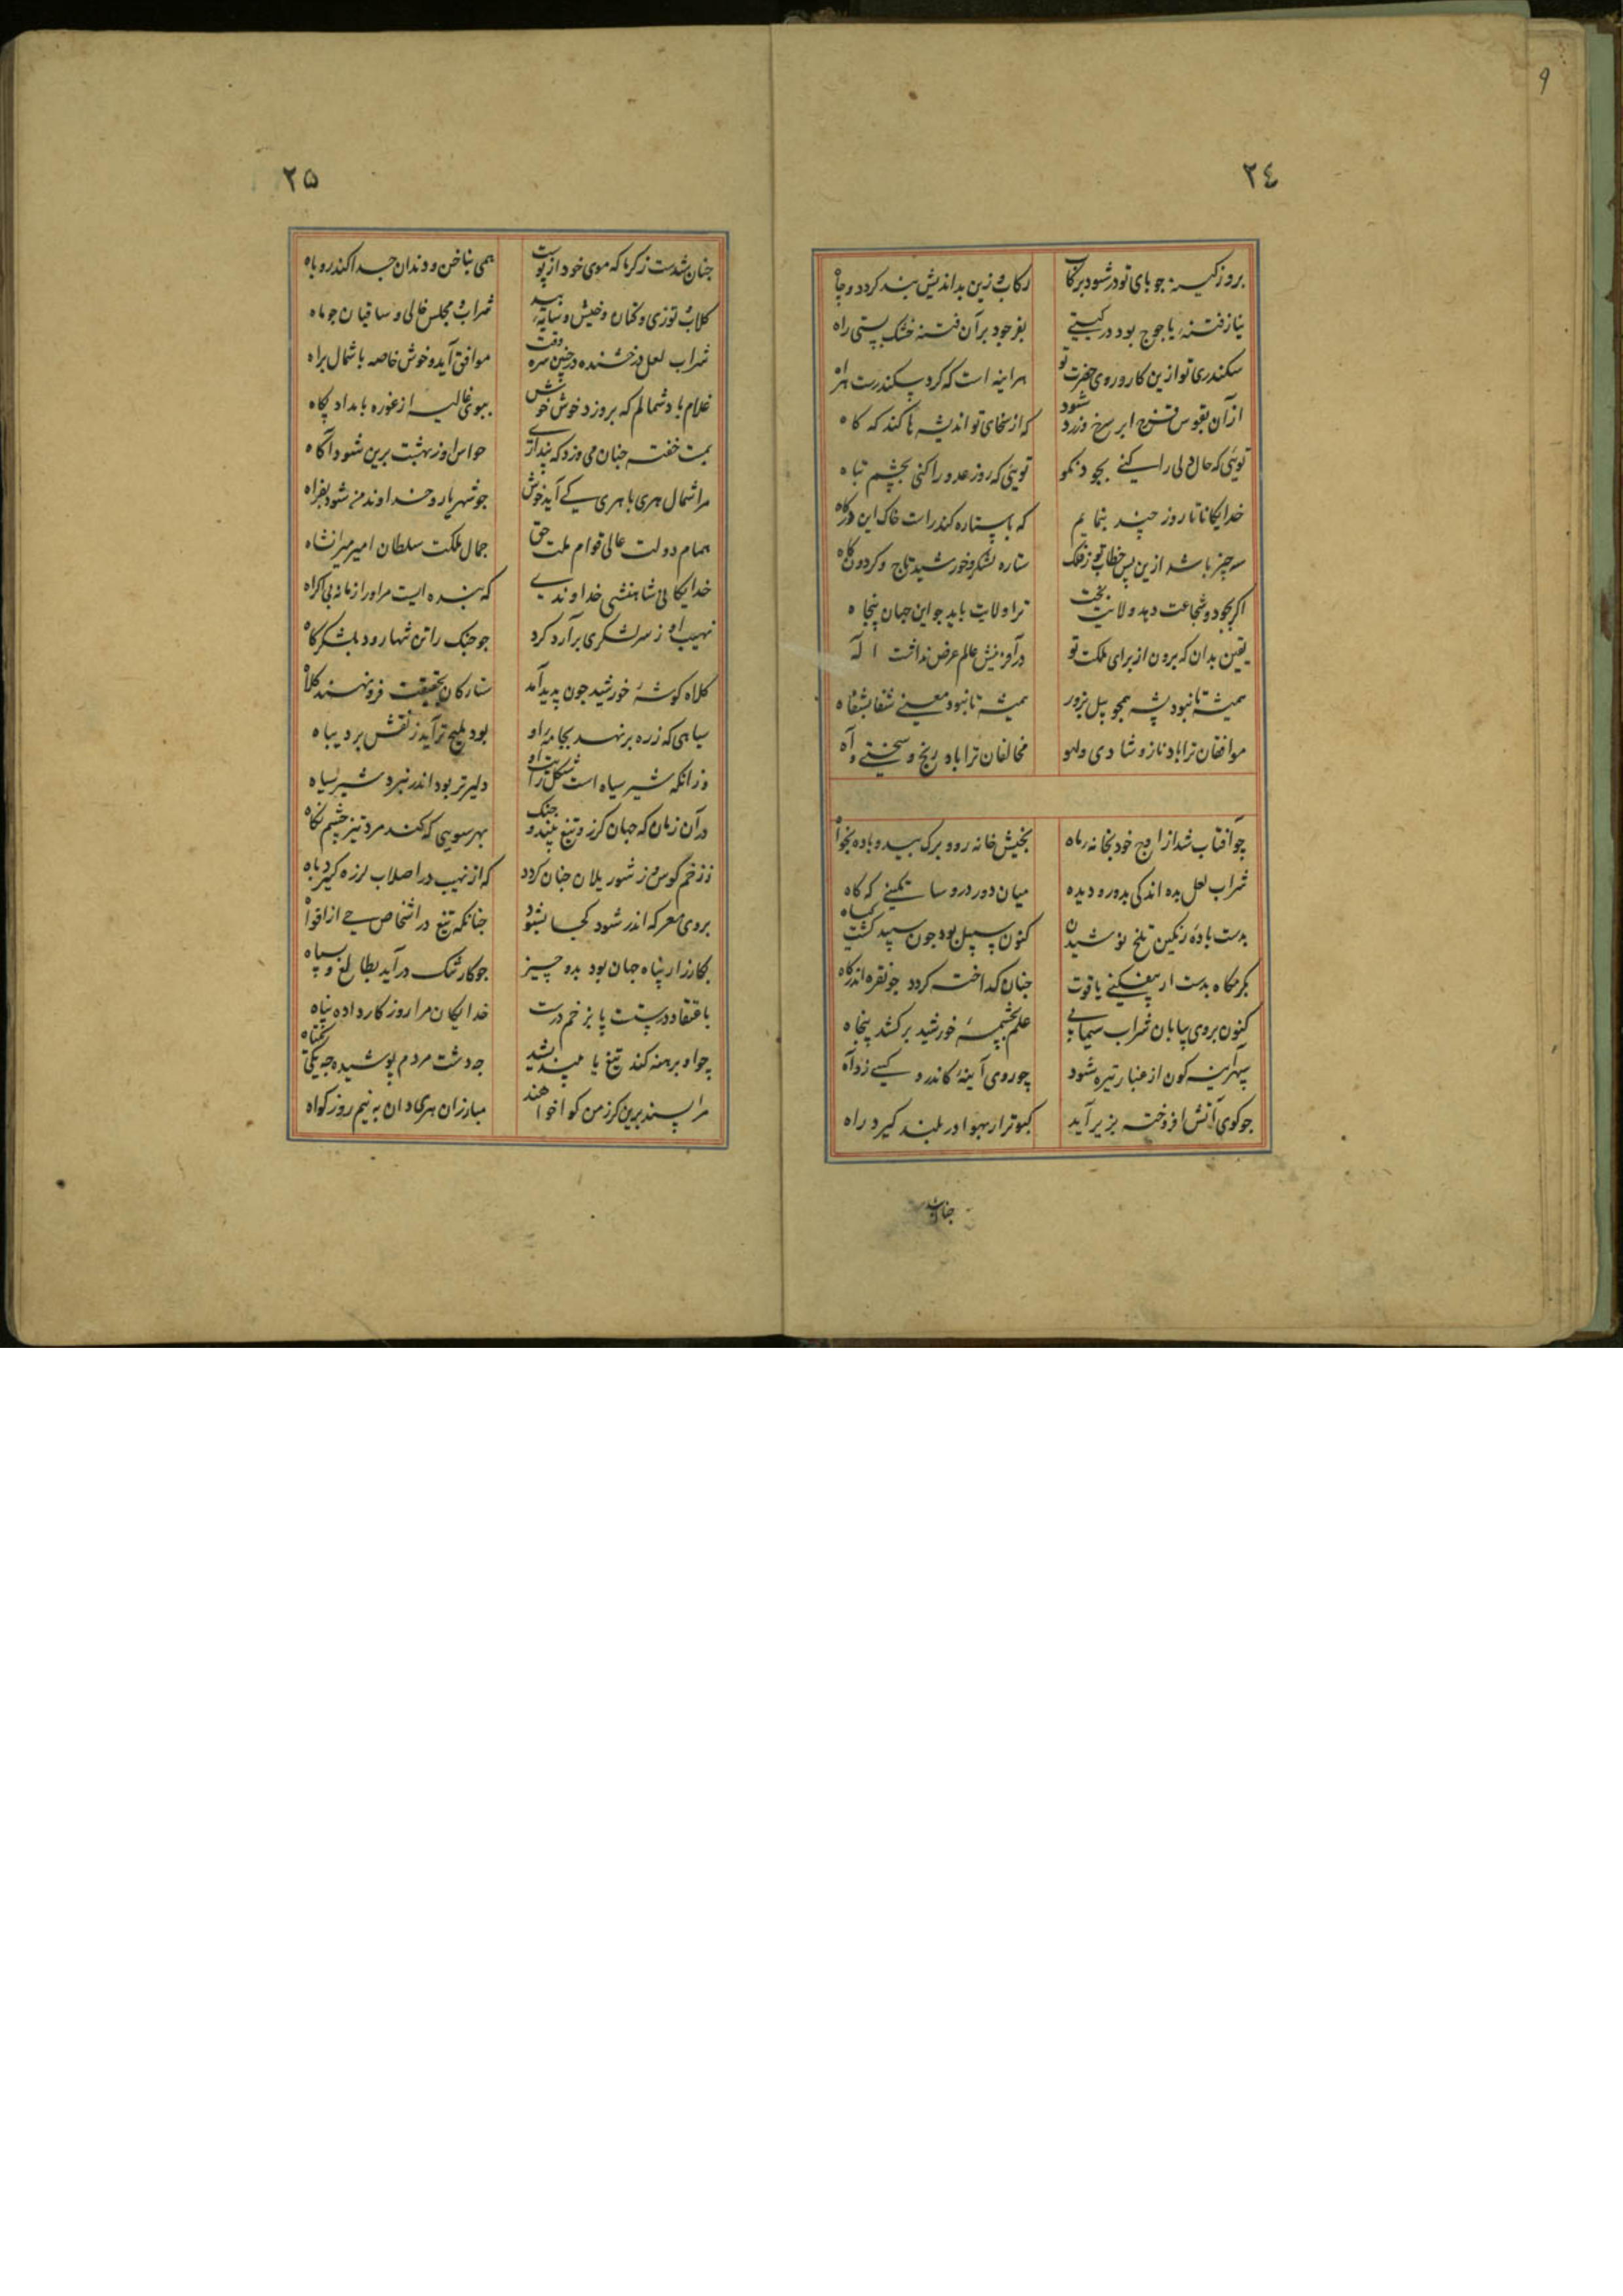 9
٢٤
بروز کینه جو پای تو در شود برکاب رکاب و زین بداندیش بند کردد و چاه
نیاز فتنۀ یاجوج بود در کیتی بفر جود بر آن فتنه خنک بستی راه
سکندری تو ازین کار و روی حضرت تو هر اینه است که کرد سکندرست
از آن بقوس قزح ابر سرخ و زرد شود که از سخای تو اندیشه ها کند که کاه
تویی که حال ولی را کنی بجود نکو تویی که روز عدو را کنی بچشم تباه
خدایکانا تا روز چند بنمایم که با ستاره کند راست خاک این درکاه
سه چیز باشد ازین پس خطاب تو ز فلک ستاره لشکر و خورشید تاج و کردون کاه
اکر بجود و شجاعت دهد ولایت بخت ترا ولایت باید جو این جهان پنجاه
یقین بدان که برون از برای ملکت تو در آفرینش عالم غرض نداشت اله
همیشه تا نبود پشه همجو پیل بزور همیشه تا نبود معنی شفا بشفاه
موافقان ترا باد ناز و شادی و لهو مخالفان ترا باد رنج و سختی و آه
چو آفتاب شد از اوج خود بخانه ماه بخیش خانه رو و برک بید و باده بخواه
شراب لعل بده اندکی بدور و دیده میان دور درو ساتکینی که کاه
بدست باده رنکین تلخ نوشیدن کنون سبیل بود جون سپید کشت کیاه
بکرمکاه بدست ار بیفکنی یاقوت جنان کداخته کردد جو نقره اندر کاه
کنون بروی بیابان شراب سیمابی علم بچشمۀ خورشید بر کشد پنجاه
سپهر آینه کون از غبار تیره شود چو روی آینۀ کاندرو کسی زد آه
جو کوی آتش افروخته بزیر آید کبوتر ار بهوا در بلند کیرد راه
جنان شد
٢٥
جنان شدست ز کرما که موی خود از پوست همی بناخن و دندان جدا کند روباه
کلاب و توزی و کتان و خیش و سایۀ بید شراب و مجلس خالی و ساقیان جو ماه
شراب لعل درخشنده در چنین سره وقت موافق آید و خوش خاصه با شمال براه
غلام باد شمالم که بروزد خوش خوش ببوی غالیه از غوره بامداد پکاه
بمیت خفته جنان می وزد که پنداری حواس او ز بهشت برین شود آکاه
مرا شمال هری با هری کی آید خوش جو شهریار و خداوند من شود بفراه
همام دولت عالی قوام ملت حق جمال ملکت سلطان امیر میرانشاه
خدایکانی شاهنشهی خداوندی که بنده ایست مر او را زمانه بی اکراه
نهیب او ز سر لشکری برآرد کرد جو جنک را تن شها رود بلشکرکاه
کلاه کوشۀ خورشید جون پدید آمد ستارکان بحقیقت فرو نهند کلاه
سپاهی که زره بر نهد بجامۀ او بود ملیح تر آید ز نقش بر دیباه
وزانکه شیر سیاه است شکل رایت او دلیرتر بود اندر نبرد شیر سیاه
در آن زمان که جهان کرز و تیغ بیند و جنک بهر سویی که کند مرد تیز چشم نکاه
ز زخم کوس و ز شور یلان جنان کردد که از نهیب در اصلاب لرزه کیرد باه
بروی معرکه اندر شود کجا بشنود جنانکه تیغ در اشخاص حی از افواه
بکارزار پناه جهان بود بدو چیز جو کار تنک درآید بطالع و سپاه
باعتقاد درست پا بزخم درست خدایکان مرا روز کار داده پناه
چو او برهنه کند تیغ یا بیندیشد جه دشت مردم پوشیده جه یکی تنکتاه
مرا پسند برین کرز من کوا خواهند مبارزان هری دان به نیم روز کواه